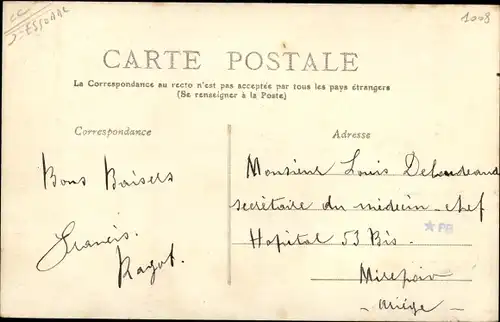 1008
CARTE POSTALE
La Correspondance au recto n'est pas acceptée par tous les pays étrangers
(Se renseigner à la Poste)
Correspondance
Adresse
Bons Baisers
Francis.
Ragot.
Monsieur Louis
secrétaire du médecin-chef
Hopital 53 Bis.
Mirepoix
- Ariège -
PB